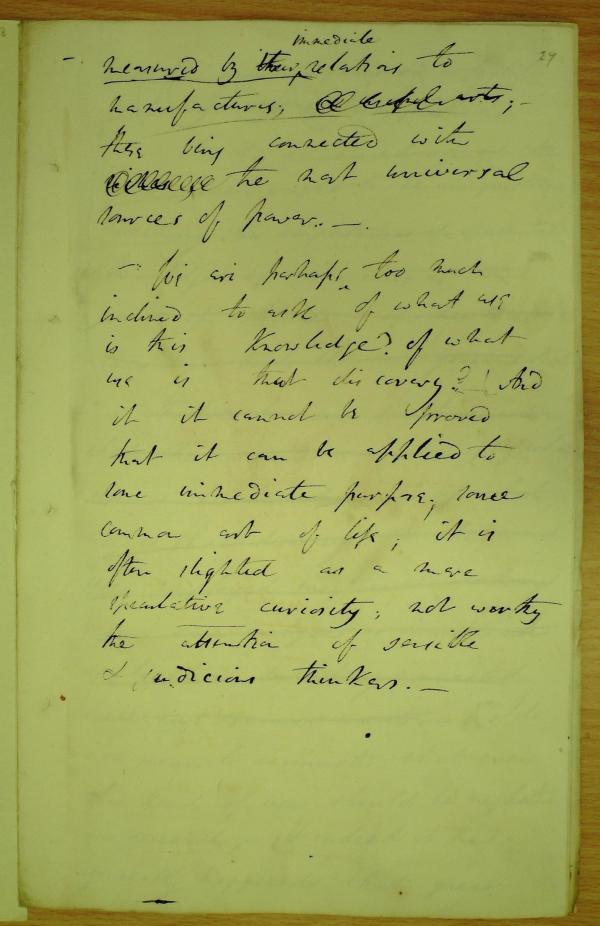 immediate
29
- measured by their relations to
manufactures, & useful arts, -
these being connected with
the most universal
sources of power. -.
- We are perhaps too much
inclined to ask of what use
is this Knowledge? of what
use is that discovery? And
if it cannot be proved
that it can be applied to
some immediate purpose, some
common art of life, it is
often slighted as a mere
speculative curiosity, not worthy
the attention of sensible
& judicious thinkers. -